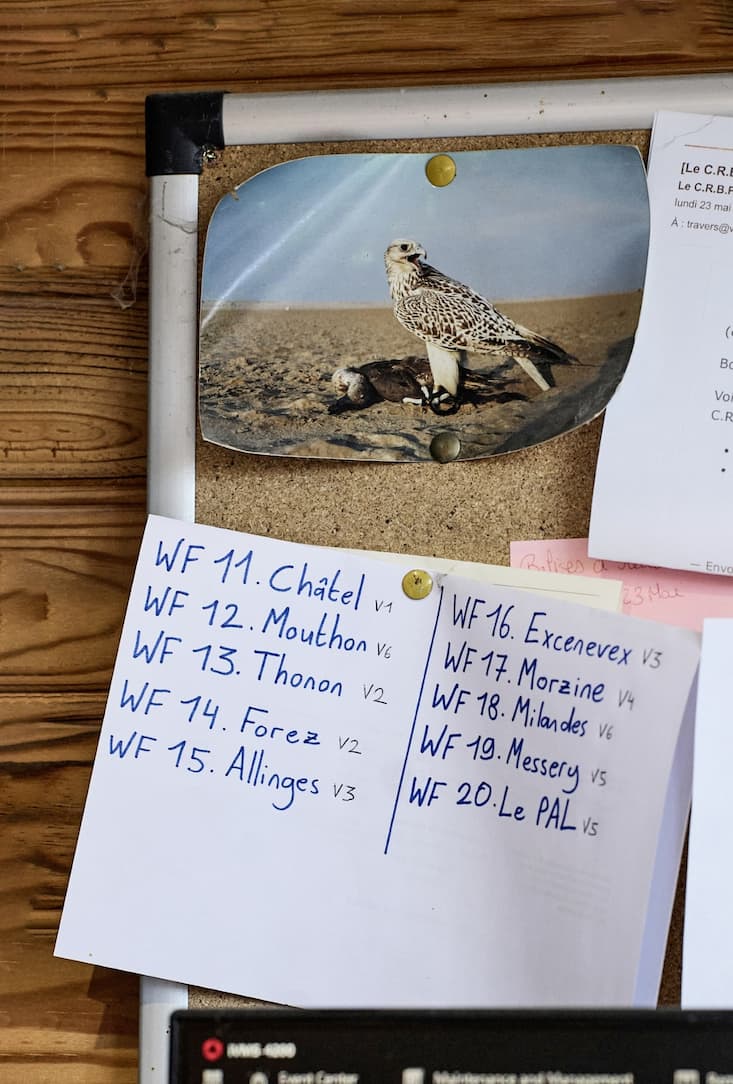 [Le C.R.B
Le C.R.B.P
lundi 23 mai
À : travers@v
Bo
Voi
C.R
— Envo
23 Mai
WF 11. Châtel V1
WF 12. Mouthon V6
WF 13. Thonon V2
WF 14. Forez V2
WF 15. Allinges V3
WF 16. Excenevex V3
WF 17. Morzine V4
WF 18. Milandes V6
WF 19. Messery V5
WF 20. Le PAL V5
Event Center
Maintenance and Management